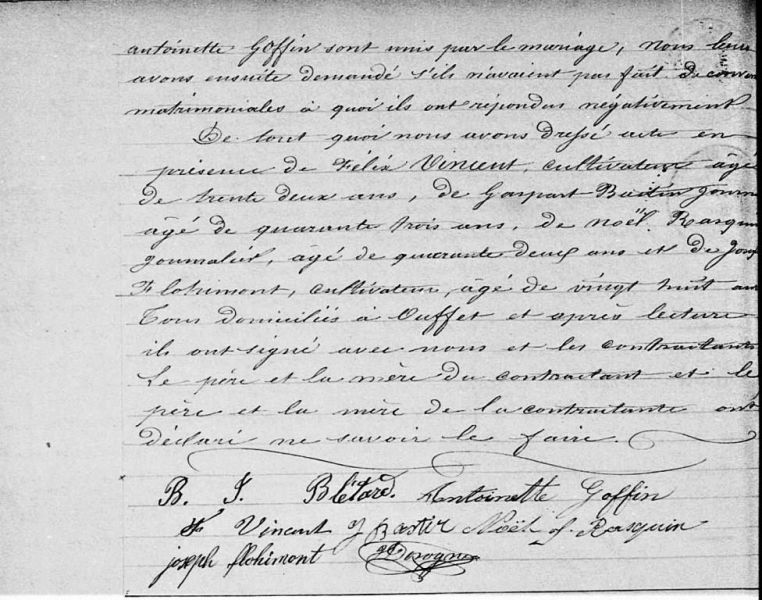 antoinette Goffin sont unis par le mariage, nous leur
avons ensuite demandé s'ils n'avaient pas fait de conven
matrimoniales à quoi ils ont répondus négativement
De tout quoi nous avons dressé acte en
présence de Félix Vincent, cultivateur âgé
de trente deux ans, de Gaspart Bastin journ
âgé de quarante trois ans, de noël Rasquin
journalier, âgé de quarante deux ans et de Jos
Flohimont, cultivateur, âgé de vingt huit an
Tous domiciliés à Ouffet et après lecture
ils ont signé avec nous et les contractants
Le père et la mère du contractant et le
père et la mère de la contractante ont
déclaré ne savoir le faire.
B. J. Blétard. Antoinette Goffin
F Vincent G Bastin Noël Rasquin
joseph flohimont